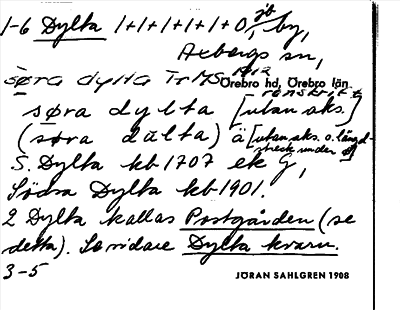 1-6 Dylta 1+1+1+1+1+0, jb by,
Axbergs sn,
söra dylta Tr MS 1912 Örebro hd, Örebro län
renskrift
søra dylta [utan aks.]
(søra dälta) ä [utan aks. o. längd-
streck under ø]
S. Dylta kb 1707 ek G,
Södra Dylta kb 1901.
2 Dylta kallas Postgården (se
detta). Se vidare Dylta kvarn.
3-5
JÖRAN SAHLGREN 1908